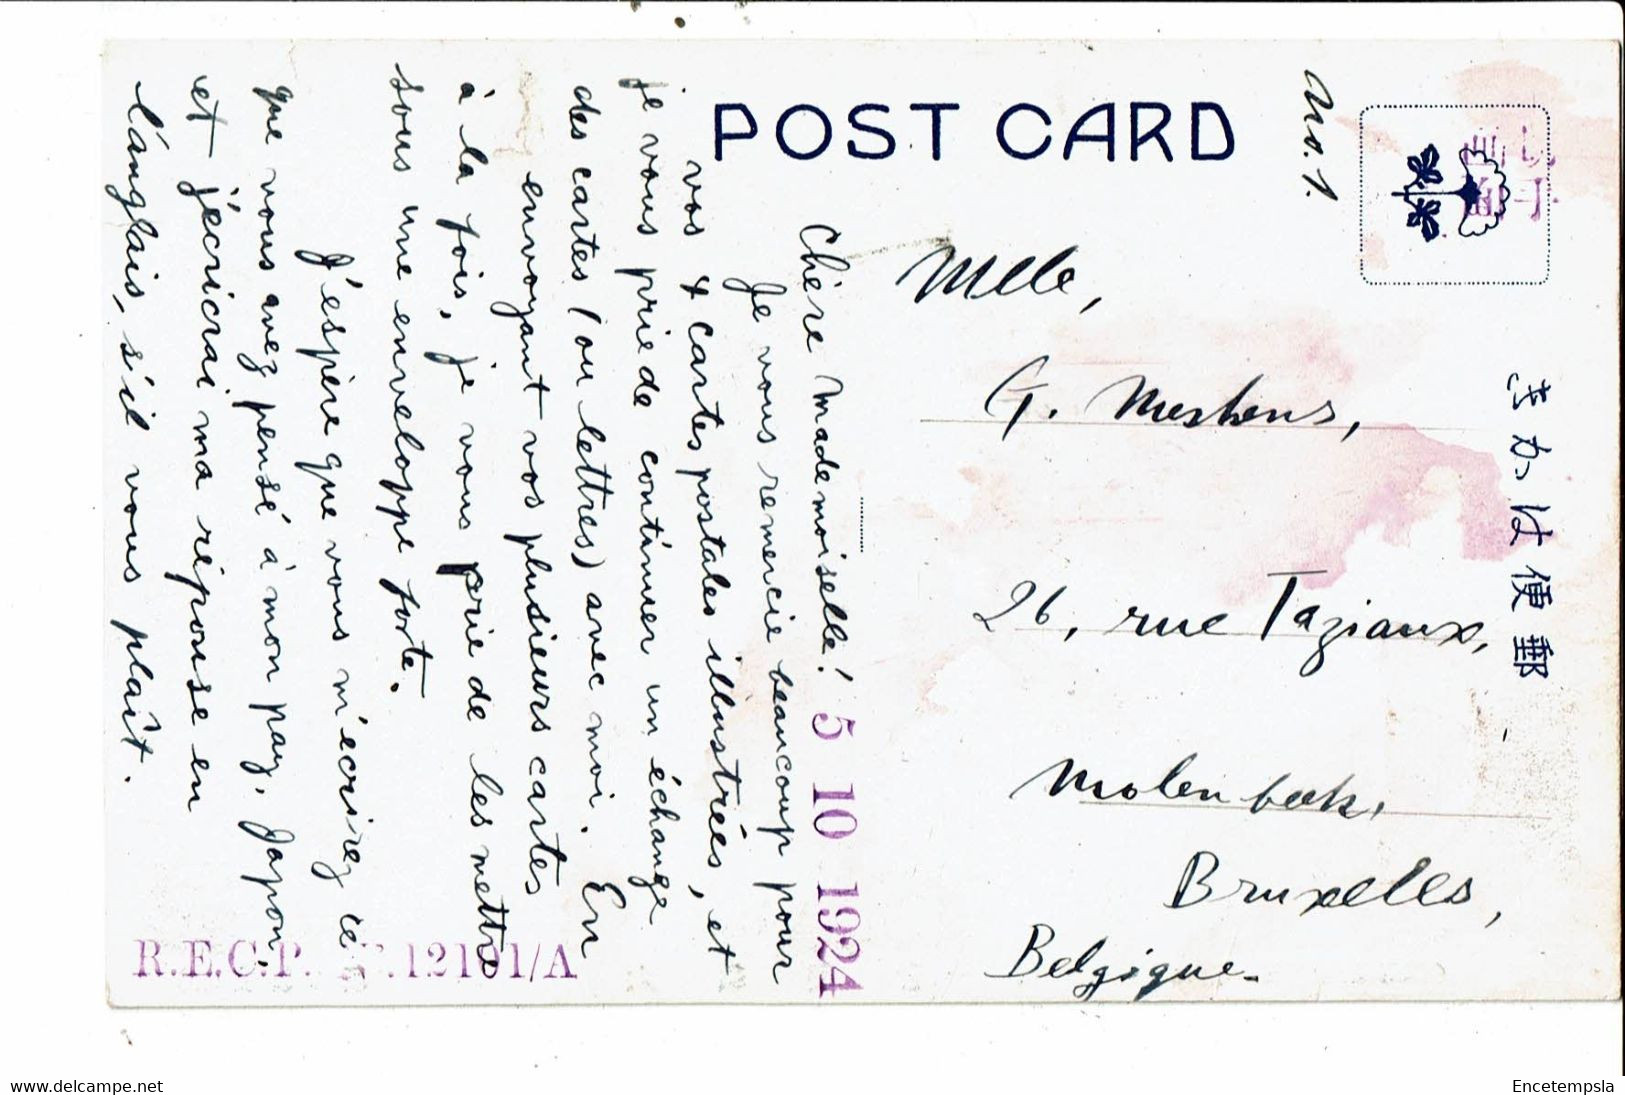 POST CARD
No. 1.
Chère Mademoiselle!
Je vous remercie beaucoup pour
vos 4 cartes postales illustrées, et
je vous prie de continuer un échange
des cartes (ou lettres) avec moi. En
envoyant vos plusieurs cartes
à la fois, je vous prie de les mettre
sous une enveloppe forte.
J'éspère que vous m'écrirez ce
que vous avez pensé à mon pay, Japon
et j'écricrai ma réponse en
l'anglais, s'il vous plaît.
5 10 1924
R.E.C.P. 12101/A
Melle,
G. Mertens,
26, rue Taziaux,
Molenbeek,
Bruxelles,
Belgique.
きかは便郵
www.delcampe.net
Encetempsla